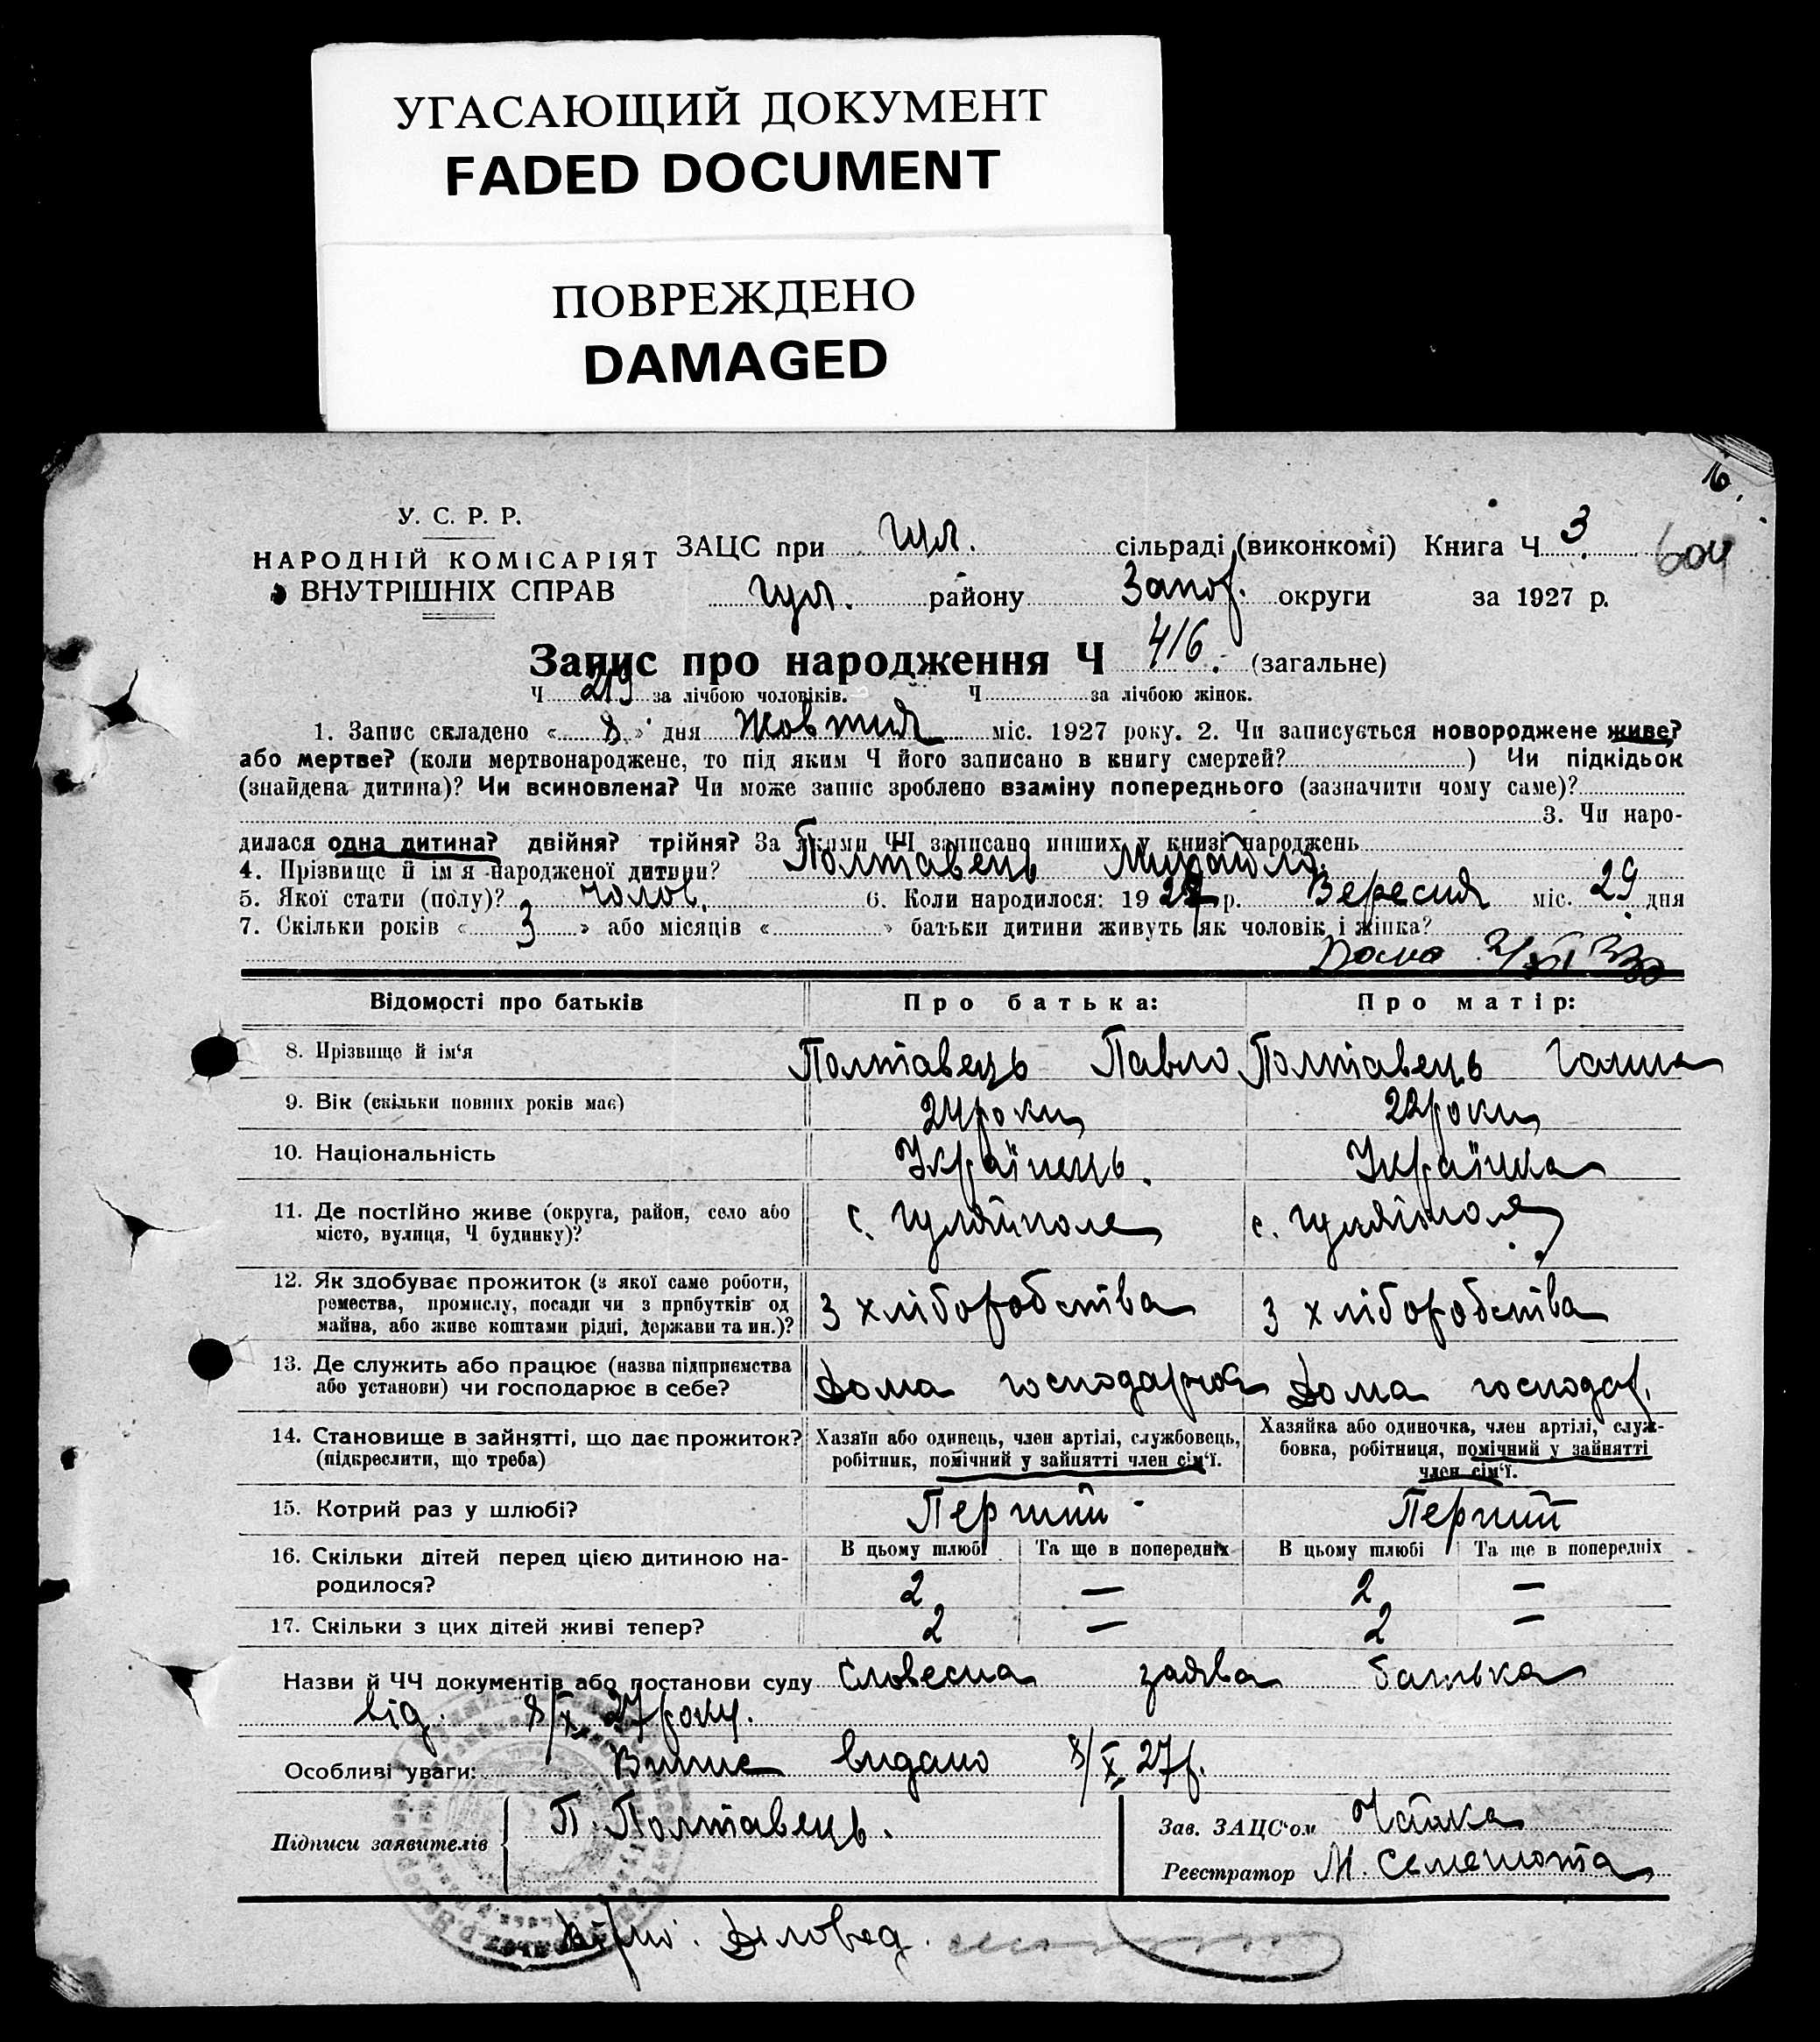 УГАСАЮЩИЙ ДОКУМЕНТ
FADED DOCUMENT
ПОВРЕЖДЕНО
DAMAGED
16.
У. С. Р. Р.
НАРОДНІЙ КОМІСАРІЯТ
ВНУТРІШНІХ СПРАВ
ЗАЦС при Гул. сільраді (виконкомі) Книга Ч 3. 604
Гул. району Запор. округи за 1927 р.
Запис про народження Ч 416. (загальне)
Ч 219 за лічбою чоловіків. Ч за лічбою жінок.
1. Запис складено « 8 » дня Жовтня міс. 1927 року. 2. Чи записується новороджене живе?
або мертве? (коли мертвонароджене, то під яким Ч його записано в книгу смертей? ) Чи підкідьок
(знайдена дитина)? Чи всиновлена? Чи може запис зроблено взаміну попереднього (зазначити чому саме)?
3. Чи наро-
дилася одна дитина? двійня? трійня? За якими ЧЧ записано инших у книзі народжень
4. Прізвище й ім'я народженої дитини? Полтавець
5. Якої стати (полу)? чолов. 6. Коли народилося: 1927 р. Вересня міс. 29 дня
7. Скільки років « 3 » або місяців « » батьки дитини живуть як чоловік і жінка?
Відомості про батьків Про батька: Про матір:
8. Прізвище й ім'я Полтавець Павло Полтавець Галина
9. Вік (скільки повних років має) 24 роки 22 роки
10. Національність Українець. Українка
11. Де постійно живе (округа, район, село або с. Гуляйполе с. Гуляйполе
місто, вулиця, Ч будинку)?
12. Як здобуває прожиток (з якої саме роботи,
ремества, промислу, посади чи з прибутків од з хліборобства з хліборобства
майна, або живе коштами рідні, держави та ин.)?
13. Де служить або працює (назва підприємства Дома господарює Дома господар.
або установи) чи господарює в себе?
14. Становище в зайнятті, що дає прожиток? Хазяїн або одинець, член артілі, службовець, Хазяйка або одиночка, член артілі, служ-
(підкреслити, що треба) робітник, помічний у зайнятті член сім'ї. бовка, робітниця, помічний у зайнятті
член сім'ї.
15. Котрий раз у шлюбі? Перший Перший
16. Скільки дітей перед цією дитиною на- В цьому шлюбі Та ще в попередніх В цьому шлюбі Та ще в попередніх
родилося? 2 — 2 —
17. Скільки з цих дітей живі тепер? 2 — 2 —
Назви й ЧЧ документів або постанови суду Словесна заява батька
від. 8/X 27 року.
Особливі уваги: Випис видано 8/X 27 р.
Підписи заявителів П. Полтавець.
Зав. ЗАЦС'ом Чайка
Реєстратор М. Семенюта
Вірно: Діловод.